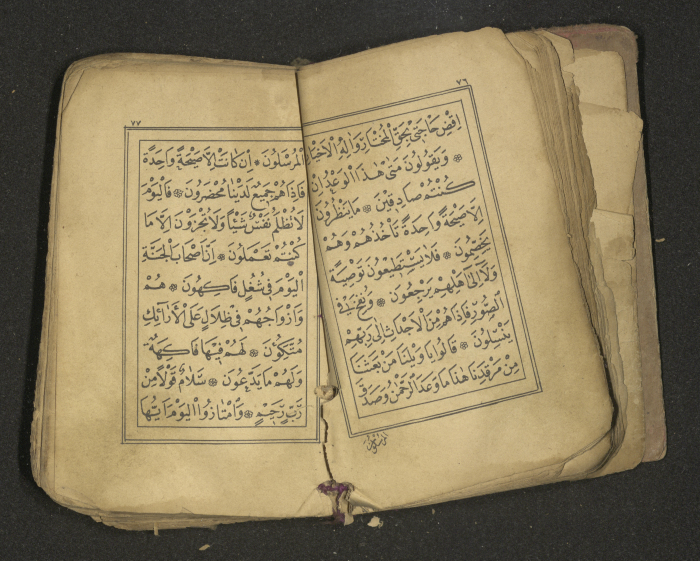 ٧٦
اِقْضِ حَاجَتِى بِحَقِّ الْمُخْتَارِ وَاٰلِهِ الْاَخْيَارِ
❁ وَيَقُولُونَ مَتٰى هٰذَا الْوَعْدُ اِنْ
كُنْتُمْ صَادِقِينَ ❁ مَا يَنْظُرُونَ
اِلَّا صَيْحَةً وَاحِدَةً تَأْخُذُهُمْ وَهُمْ
يَخِصِّمُونَ ❁ فَلَا يَسْتَطِيعُونَ تَوْصِيَةً
وَلَا اِلٰى اَهْلِهِمْ يَرْجِعُونَ ❁ وَنُفِخَ فِى
الصُّورِ فَاِذَا هُمْ مِنَ الْاَجْدَاثِ اِلٰى رَبِّهِمْ
يَنْسِلُونَ ❁ قَالُوا يَا وَيْلَنَا مَنْ بَعَثَنَا
مِنْ مَرْقَدِنَا هٰذَا مَا وَعَدَ الرَّحْمٰنُ وَصَدَقَ
الْمُرْسَلُونَ
٧٧
الْمُرْسَلُونَ ❁ اِنْ كَانَتْ اِلَّا صَيْحَةً وَاحِدَةً
فَاِذَا هُمْ جَمِيعٌ لَدَيْنَا مُحْضَرُونَ ❁ فَالْيَوْمَ
لَا تُظْلَمُ نَفْسٌ شَيْئًا وَلَا تُجْزَوْنَ اِلَّا مَا
كُنْتُمْ تَعْمَلُونَ ❁ اِنَّ اَصْحَابَ الْجَنَّةِ
الْيَوْمَ فِى شُغُلٍ فَاكِهُونَ ❁ هُمْ
وَاَزْوَاجُهُمْ فِى ظِلَالٍ عَلَى الْاَرَائِكِ
مُتَّكِؤُنَ ❁ لَهُمْ فِيهَا فَاكِهَةٌ
وَلَهُمْ مَا يَدَّعُونَ ❁ سَلَامٌ قَوْلًا مِنْ
رَبٍّ رَحِيمٍ ❁ وَامْتَازُوا الْيَوْمَ اَيُّهَا